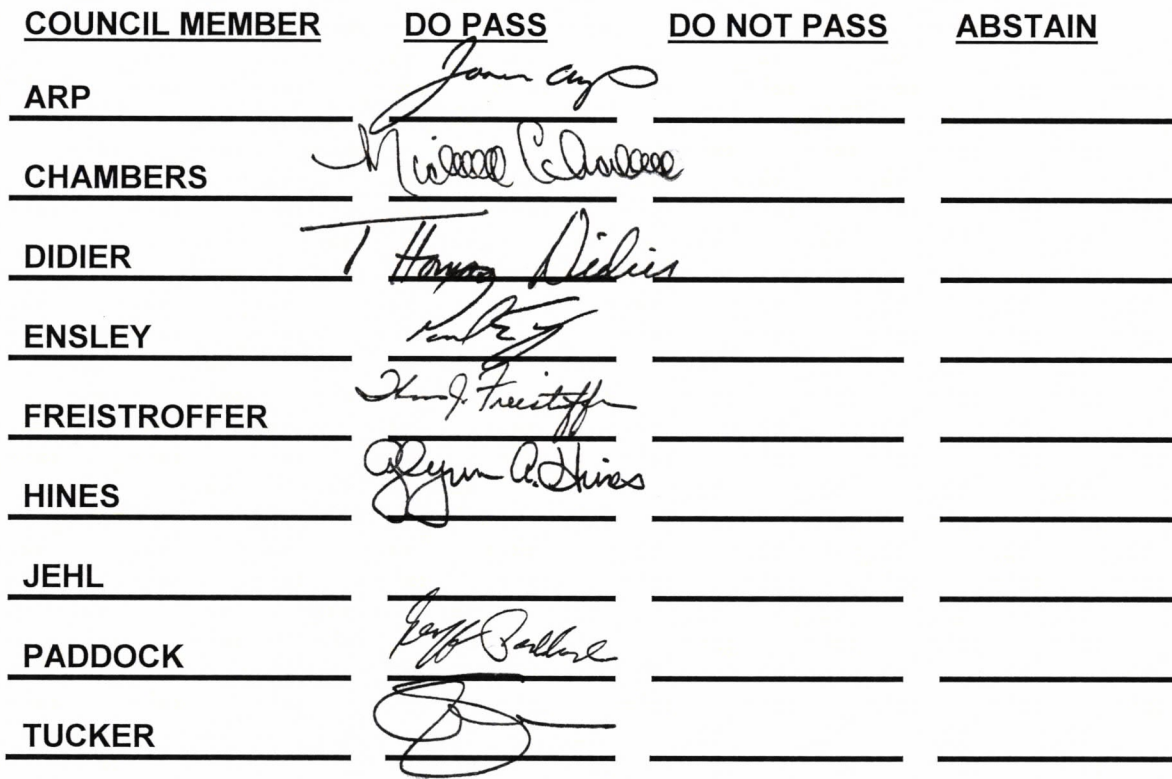 COUNCIL MEMBER DO PASS DO NOT PASS ABSTAIN
ARP
CHAMBERS
DIDIER T Homas Didier
ENSLEY
FREISTROFFER Thomas J. Freistroffer
HINES Glynn A. Hines
JEHL
PADDOCK Geoff Paddock
TUCKER